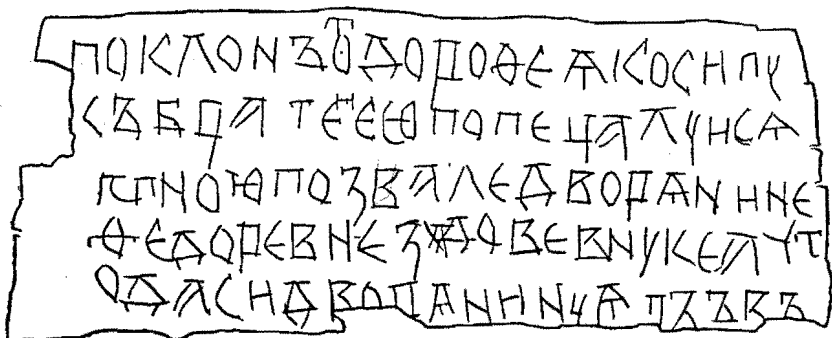 поклонъѿдороѳеѧкосипу
събратеею попецалуисѧ
мною позвале дворѧнине
ѳедоре внездове внуке а ут
ода си дворѧнину ѧ пзъвъ